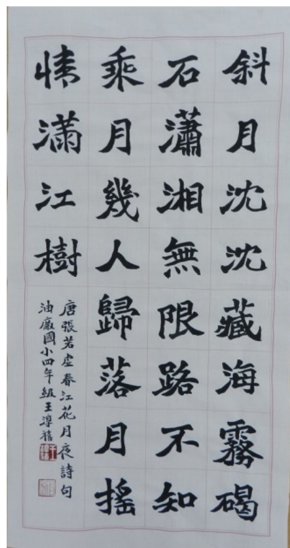 斜月沈沈藏海霧碣
石瀟湘無限路不知
乘月幾人歸落月搖
情滿江樹
唐張若虛春江花月夜詩句
油廠國小四年級王淳禧